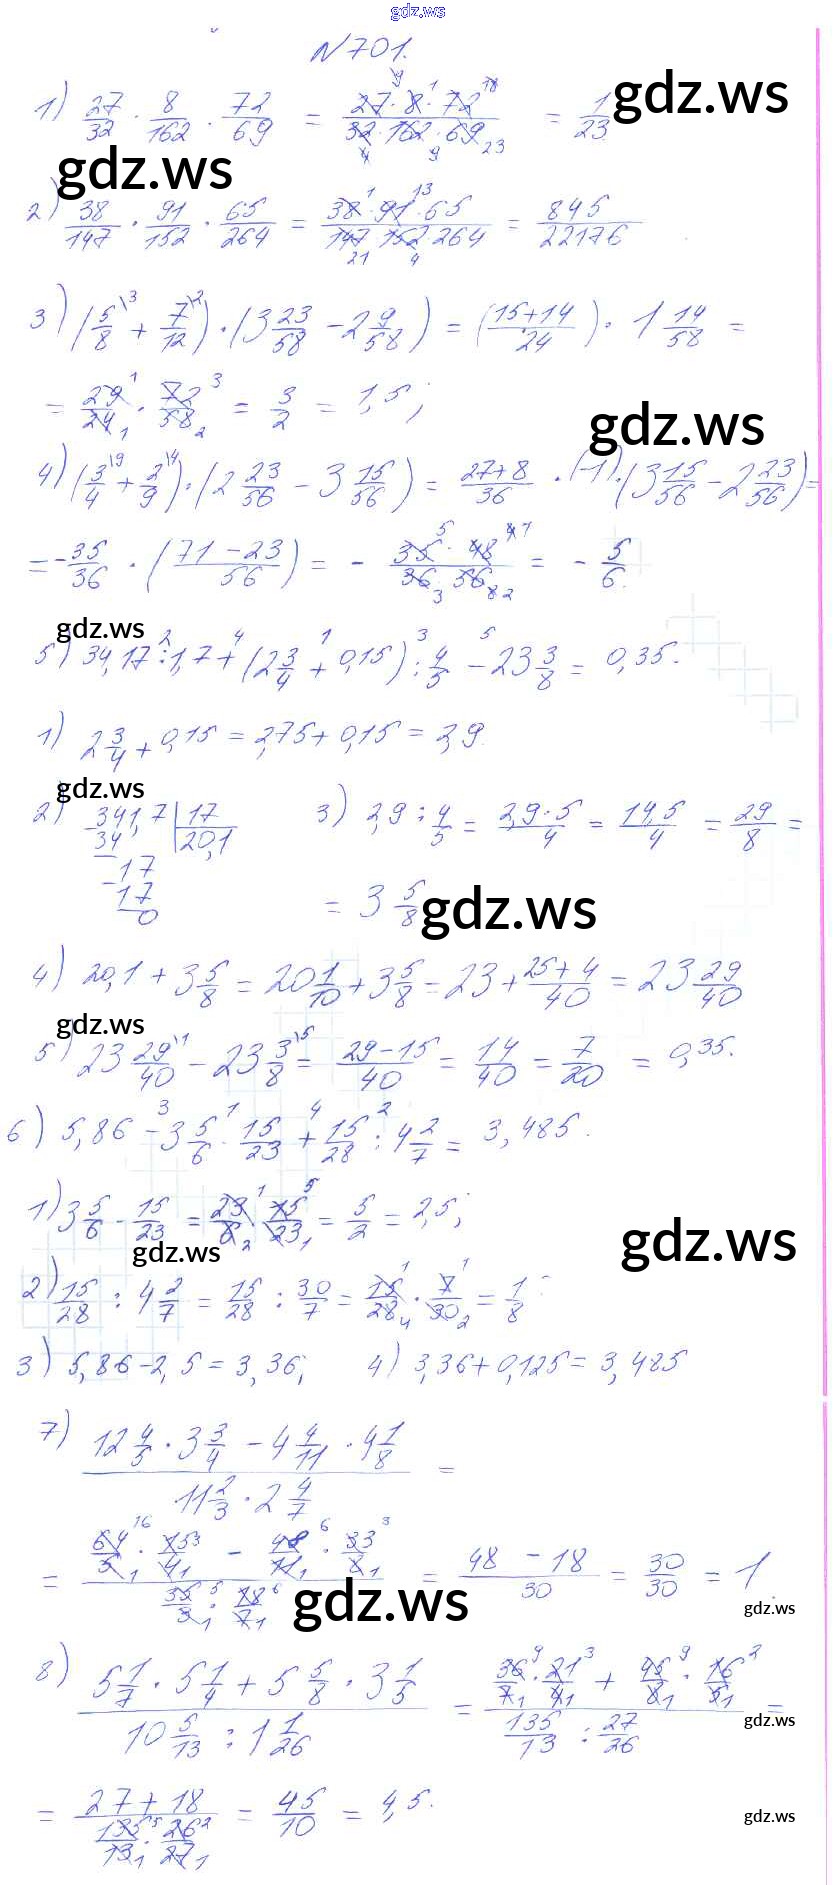 gdz.ws
N 701.
1) 27/32 · 8/162 · 72/69 = 27·8·72 / 32·162·69 = 1/23 gdz.ws
gdz.ws
2) 38/147 · 91/152 · 65/264 = 38·91·65 / 147·152·264 = 845/22176
3) (5/8 + 7/12) · (3 23/58 - 2 9/58) = (15+14 / 24) · 1 14/58 =
= 29/24 · 72/58 = 3/2 = 1,5;
gdz.ws
4) (3/4 + 2/9) · (2 23/56 - 3 15/56) = 27+8 / 36 · (-1) · (3 15/56 - 2 23/56) =
= - 35/36 · (71 - 23 / 56) = - 35 · 48 / 36 · 56 = - 5/6.
gdz.ws
5) 34,17 : 1,7 + (2 3/4 + 0,15) : 4/5 - 23 3/8 = 0,35.
1) 2 3/4 + 0,15 = 2,75 + 0,15 = 2,9.
gdz.ws
2) 341,7 | 17 3) 2,9 : 4/5 = 2,9·5 / 4 = 14,5/4 = 29/8 =
34 20,1
17
17 = 3 5/8 gdz.ws
0
4) 20,1 + 3 5/8 = 20 1/10 + 3 5/8 = 23 + 25+4 / 40 = 23 29/40
gdz.ws
5) 23 29/40 - 23 3/8 = 29-15 / 40 = 14/40 = 7/20 = 0,35.
6) 5,86 - 3 5/6 · 15/23 + 15/28 : 4 2/7 = 3,485.
1) 3 5/6 - 15/23 = 23/6 · 15/23 = 5/2 = 2,5;
gdz.ws
gdz.ws
2) 15/28 : 4 2/7 = 15/28 : 30/7 = 15/28 · 7/30 = 1/8
3) 5,86 - 2,5 = 3,36; 4) 3,36 + 0,125 = 3,485
7) 12 4/5 · 3 3/4 - 4 4/11 · 4 1/8 / 11 2/3 · 2 4/7 =
= 64/5 · 15/4 - 48/11 · 33/8 / 35/3 · 18/7 = 48 - 18 / 30 = 30/30 = 1.
gdz.ws
gdz.ws
8) 5 1/7 · 5 1/4 + 5 5/8 · 3 1/5 / 10 5/13 : 1 1/26 = 36/7 · 21/4 + 45/8 · 16/5 / 135/13 : 27/26 =
gdz.ws
= 27 + 18 / 135/13 · 26/27 = 45/10 = 4,5.
gdz.ws